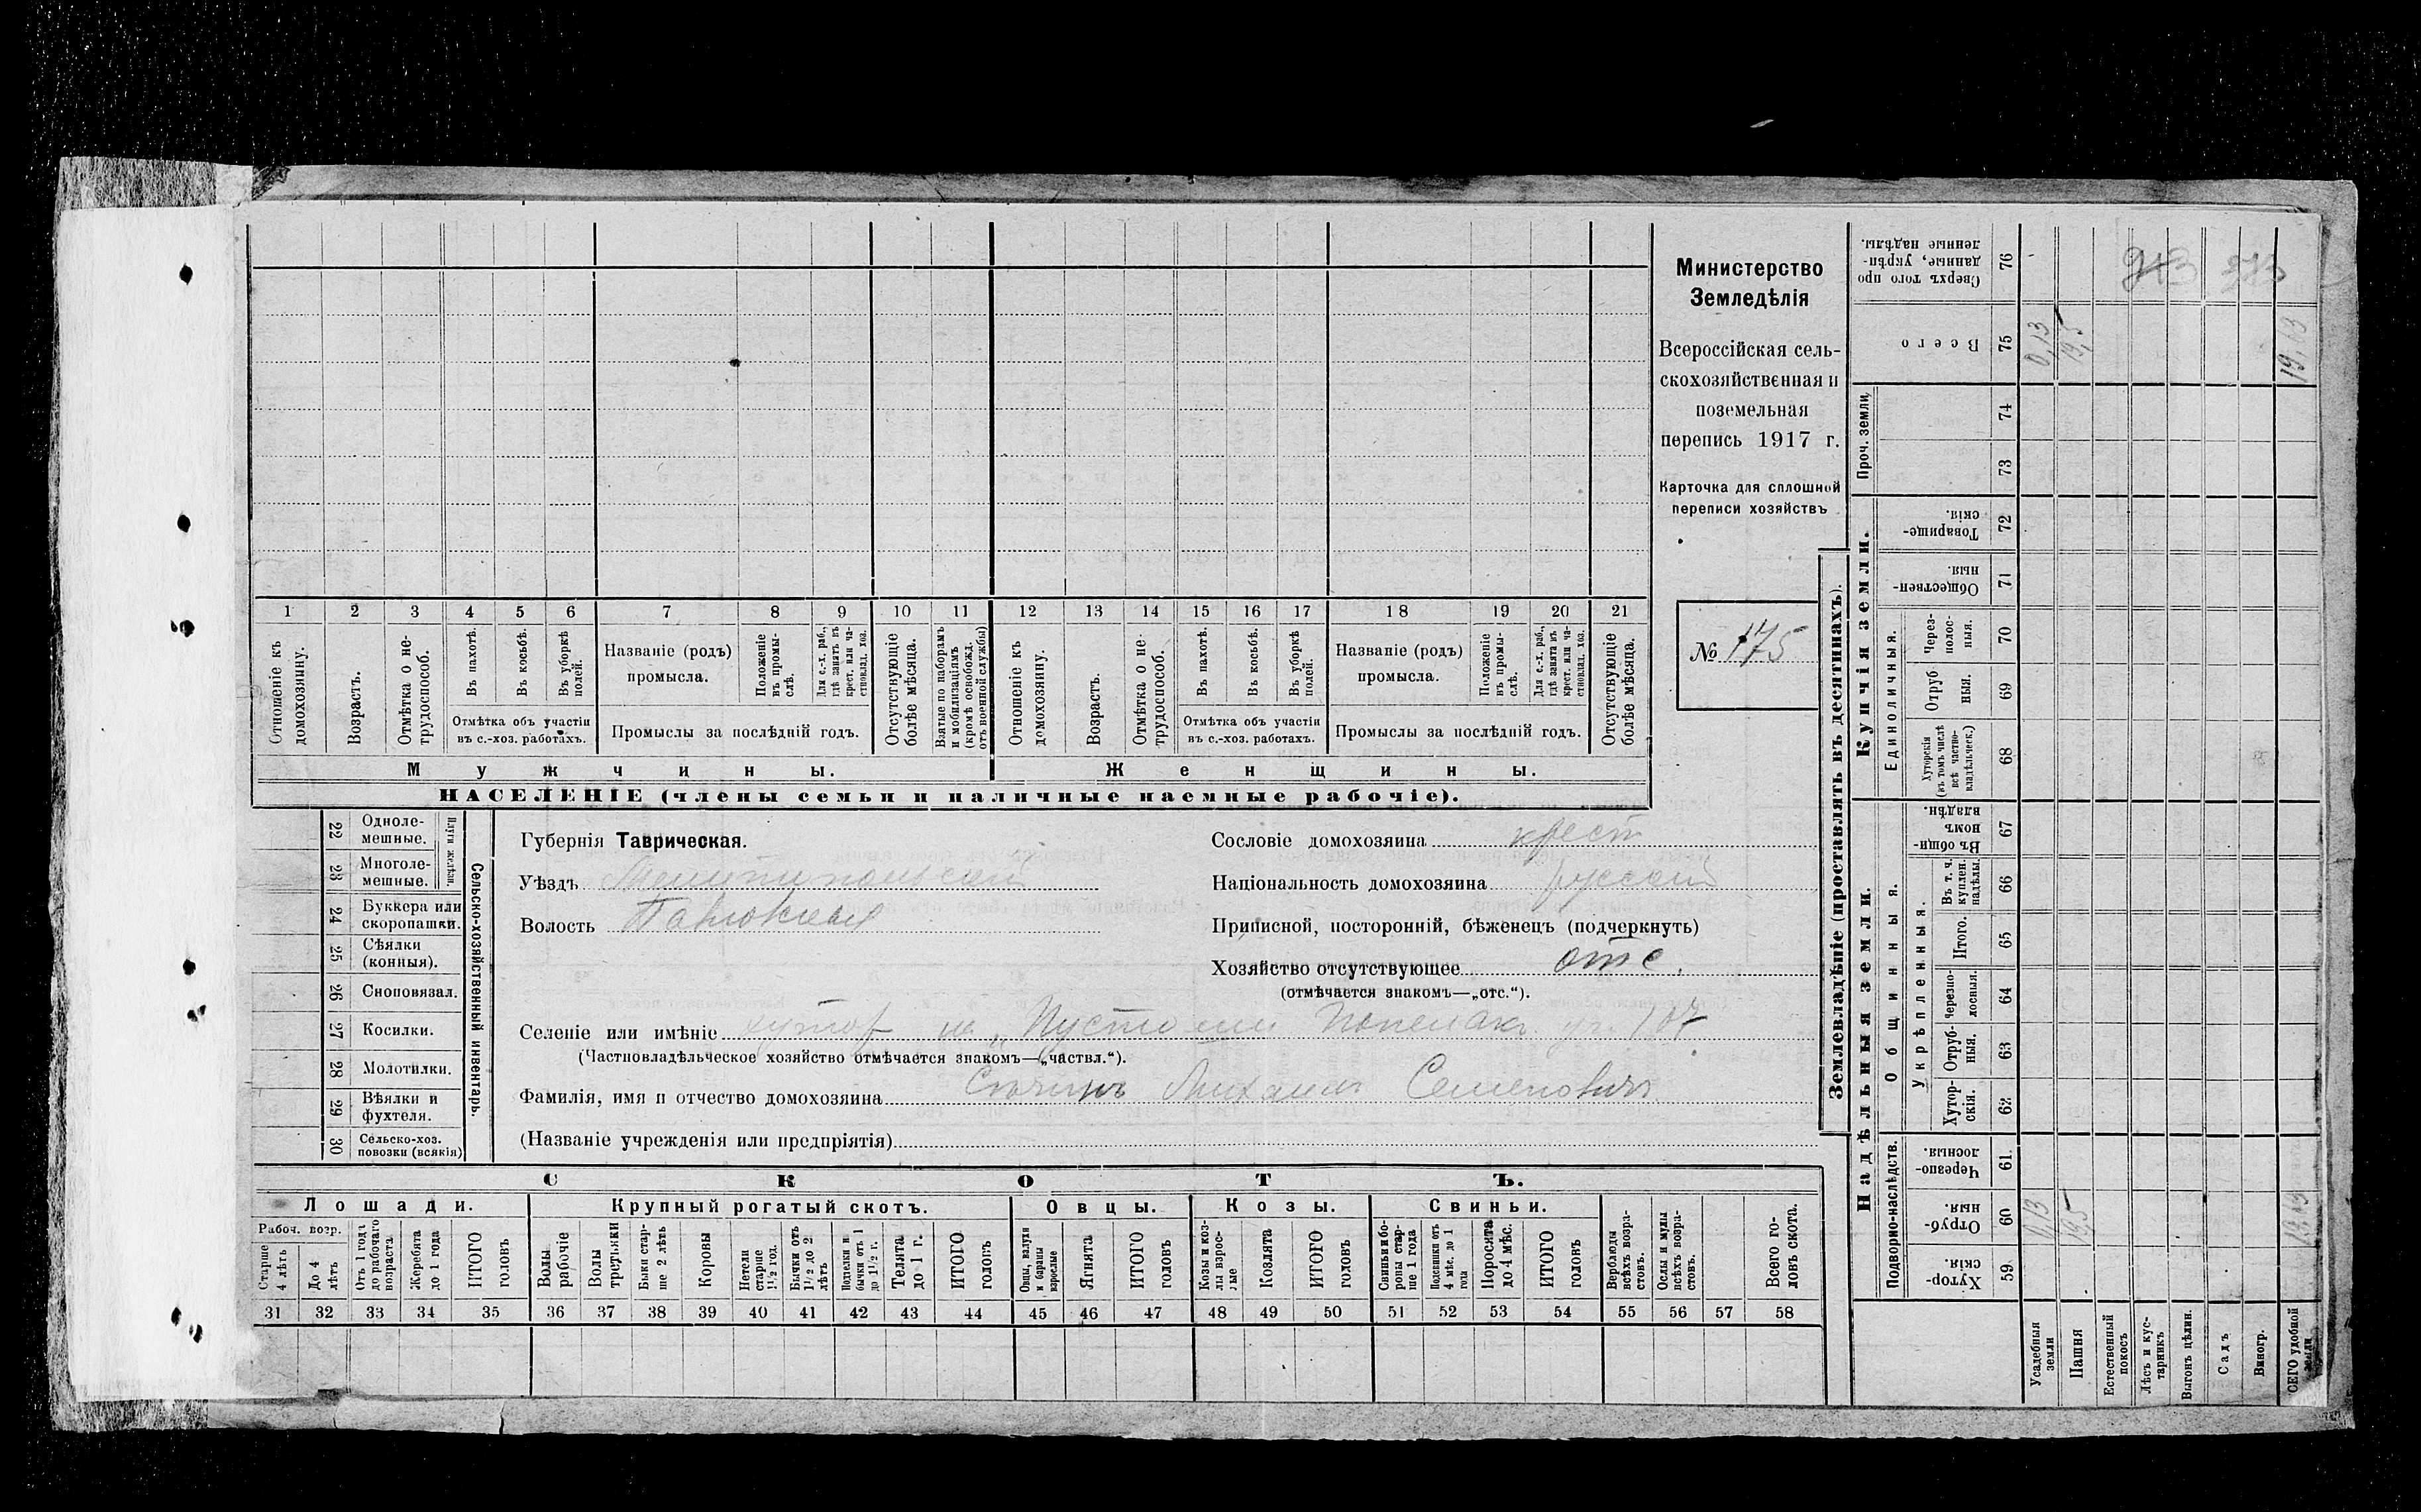 Министерство
Земледѣлія
Всероссійская сель-
скохозяйственная и
поземельная
перепись 1917 г.
Карточка для сплошной
переписи хозяйствъ
№ 175
1 2 3 4 5 6 7 8 9 10 11 12 13 14 15 16 17 18 19 20 21
Отношеніе къ домохозяину.
Возрастъ.
Отмѣтка о не-трудоспособ.
Въ пахотѣ.
Въ косьбѣ.
Въ уборкѣ полей.
Отмѣтка объ участіи
въ с.-хоз. работахъ.
Названіе (родъ)
промысла.
Положеніе въ промы-слѣ.
Для с.-х. раб., гдѣ занятъ въ крест. или ча-стновлад. хоз.
Промыслы за послѣдній годъ.
Отсутствующіе болѣе мѣсяца.
Взятые по наборамъ и мобилизаціямъ (кромѣ освобожд. отъ военной службы)
Отношеніе къ домохозяину.
Возрастъ.
Отмѣтка о не-трудоспособ.
Въ пахотѣ.
Въ косьбѣ.
Въ уборкѣ полей.
Отмѣтка объ участіи
въ с.-хоз. работахъ.
Названіе (родъ)
промысла.
Положеніе въ промы-слѣ.
Для с.-х. раб., гдѣ занята въ крест. или ча-стновлад. хоз.
Промыслы за послѣдній годъ.
Отсутствующіе болѣе мѣсяца.
Мужчины.
Женщины.
НАСЕЛЕНІЕ (члены семьи и наличные наемные рабочіе).
22 Одноле-мешные.
23 Многоле-мешные.
Плуги желѣзн.
24 Буккера или скоропашки.
25 Сѣялки (конныя).
26 Сноповязал.
27 Косилки.
28 Молотилки.
29 Вѣялки и фухтеля.
30 Сельско-хоз. повозки (всякія)
Сельско-хозяйственный инвентарь.
Губернія Таврическая.
Уѣздъ Мелитопольскій
Волость Павловская
Сословіе домохозяина крест
Національность домохозяина русский
Приписной, посторонній, бѣженецъ (подчеркнуть)
Хозяйство отсутствующее отс.
(отмѣчается знакомъ—„отс.“).
Селеніе или имѣніе хутор на „Пустоши 107
(Частновладѣльческое хозяйство отмѣчается знакомъ—„частвл.“).
Фамилія, имя и отчество домохозяина Михаилъ Семеновичъ
(Названіе учрежденія или предпріятія)
СКОТЪ.
Лошади. Крупный рогатый скотъ. Овцы. Козы. Свиньи.
Рабоч. возр.
Старше 4 лѣтъ
До 4 лѣтъ
Отъ 1 года до рабочаго возраста
Жеребята до 1 года
ИТОГО головъ
Волы рабочіе
Волы третьяки
Быки стар-ше 2 лѣтъ
Коровы
Нетели старше 1½ год.
Бычки отъ 1½ до 2 лѣтъ
Подтелки и бычки отъ 1 до 1½ г.
Телята до 1 г.
ИТОГО головъ
Овцы, валухи и бараны взрослые
Ягнята
ИТОГО головъ
Козы и коз-лы взрос-лые
Козлята
ИТОГО головъ
Свиньи и бо-ровы стар-ше 1 года
Подсвинки отъ 4 мѣс. до 1 года
Поросята до 4 мѣс.
ИТОГО головъ
Верблюды всѣхъ возра-стовъ.
Ослы и мулы всѣхъ возра-стовъ.
Всего го-ловъ скота.
31 32 33 34 35 36 37 38 39 40 41 42 43 44 45 46 47 48 49 50 51 52 53 54 55 56 57 58
Землевладѣніе (проставлять въ десятинахъ).
Надѣльныя земли.
Купчія земли.
Проч. земли.
Подворно-наслѣдств.
Общинныя.
Укрѣпленныя.
Единоличныя.
Хутор-скія. 59
Отруб-ныя. 60
Черезпо-лосныя. 61.
Хутор-скія. 62
Отруб-ныя. 63
Черезпо-лосныя. 64
Итого. 65
Въ т. ч. куплен. надѣлы. 66
Въ общи-номъ владѣн. 67
Хуторскія (въ томъ числѣ всѣ частно-владѣльческ.) 68
Отруб ныя. 69
Через-полос-ныя. 70
Обществен-ныя. 71
Товарище-скія. 72
73
74
Всего 75
Сверхъ того про данные, укрѣп-ленные надѣлы. 76
Усадебныя земли 0,13 0,13
Пашня 19,5 19,5
Естественный покосъ
Лѣсъ и кус-тарникъ
Выгонъ цѣлин.
Садъ
Виногр.
СЕГО удобной земли 19,13 19,13